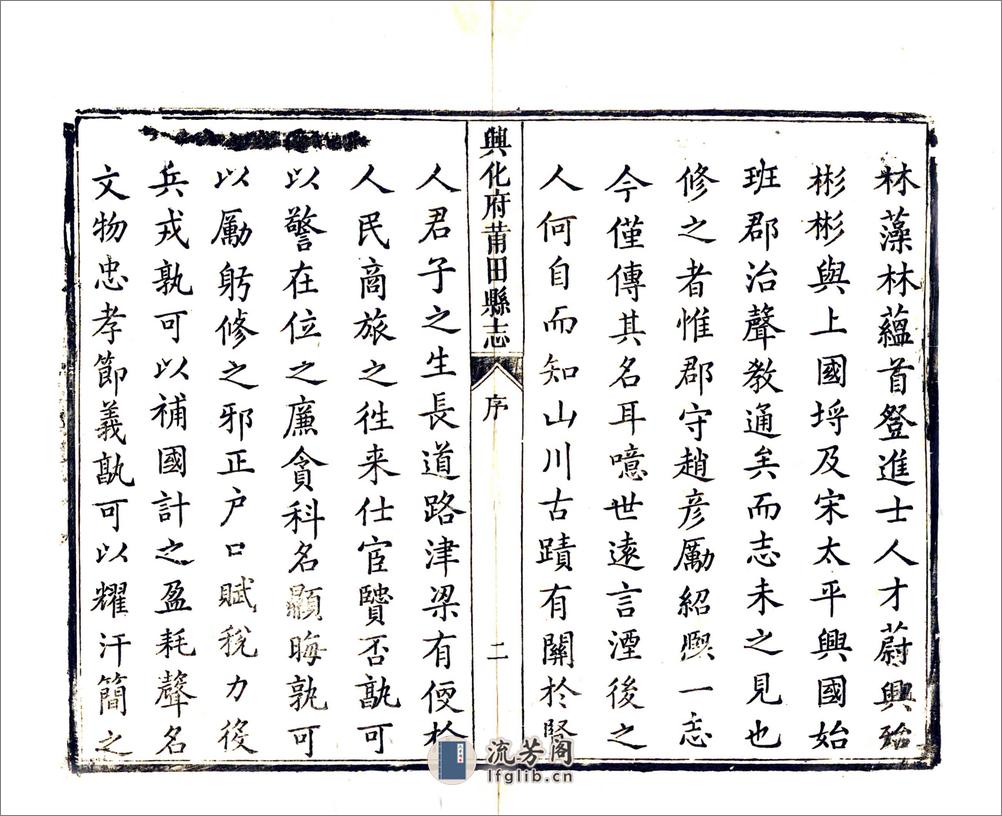 林藻林蘊首登進士人才蔚興殆
彬彬與上國埒及宋太平興國始
班郡治聲教通矣而志未之見也
修之者惟郡守趙彦勵紹熈一志
今僅傳其名耳噫世遠言湮後之
人何自而知山川古蹟有關於賢
興化府莆田縣志
序
二
人君子之生長道路津梁有便於
人民商旅之徃来仕宦賢否孰可
以警在位之廉貪科名顯晦孰可
以勵躬修之邪正户口賦稅力役
兵戎孰可以補國計之盈耗聲名
文物忠孝節義孰可以耀汗簡之
流芳阁
lfglib.cn